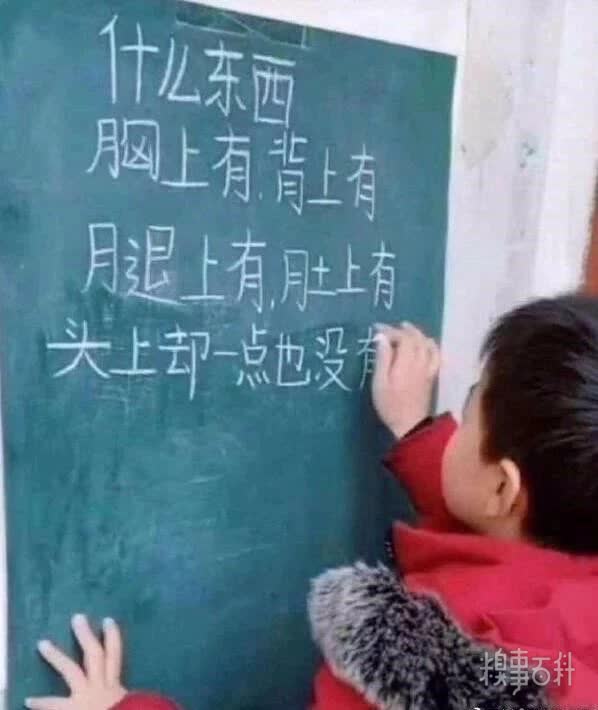 什么东西
胸上有,背上有
腿上有,肚上有
头上却一点也没有
糗事百科